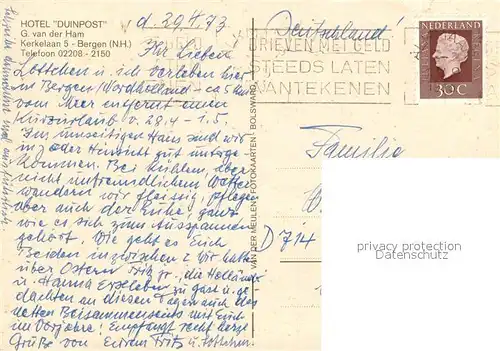 HOTEL "DUINPOST"
G. van der Ham
Kerkelaan 5 - Bergen (N.H.)
Telefoon 02208 - 2150
d. 29.4.73
Deutschland!
BRIEVEN MET GELD
STEEDS LATEN
AANTEKENEN
NEDERLAND
30C
Ihr Lieben!
Lottchen u. ich verleben hier
in Bergen Nordholland - ca 5 km
vom Meer entfernt einen
Kurzurlaub v. 28.4 - 1.5.
Im umseitigen Haus sind wir
in jeder Hinsicht gut unterge
kommen. Bei kühlem, aber
nicht unfreundlichem Wetter
wandern wir fleissig, pflegen
aber auch der Ruhe, ganz
wie es sich zum Ausspannen
gehört. Wie geht es Euch
Beiden inzwischen? Wir hatten
über Ostern Fritz jr., die Holländer
u. Hanna zu Gast u. ge
dachten an diesen Tagen auch des
netten Beisammenseins mit Euch
im Vorjahre! Empfangt recht herzl.
Grüße von Eurem Fritz u. Lottchen
Familie
D 714
VAN DER MEULEN - FOTOKAARTEN - BOLSWARD
privacy protection
Datenschutz